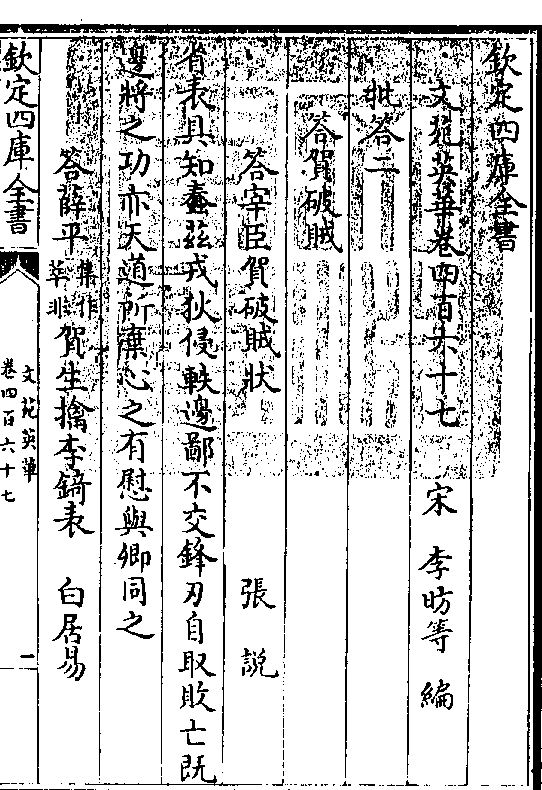 欽定四庫全書
文苑英華卷四百六十七　宋　李昉等　編
批答二
答賀破賊
答宰臣賀破賊狀　張說
省表具知蠢茲戎狄侵軼邊鄙不交鋒刃自取敗亡既
邊將之功亦天道所棄心之有慰與卿同之
答薛平集作苹非賀生擒李錡表　白居易
欽定四庫全書
文苑英華
卷四百六十七
一